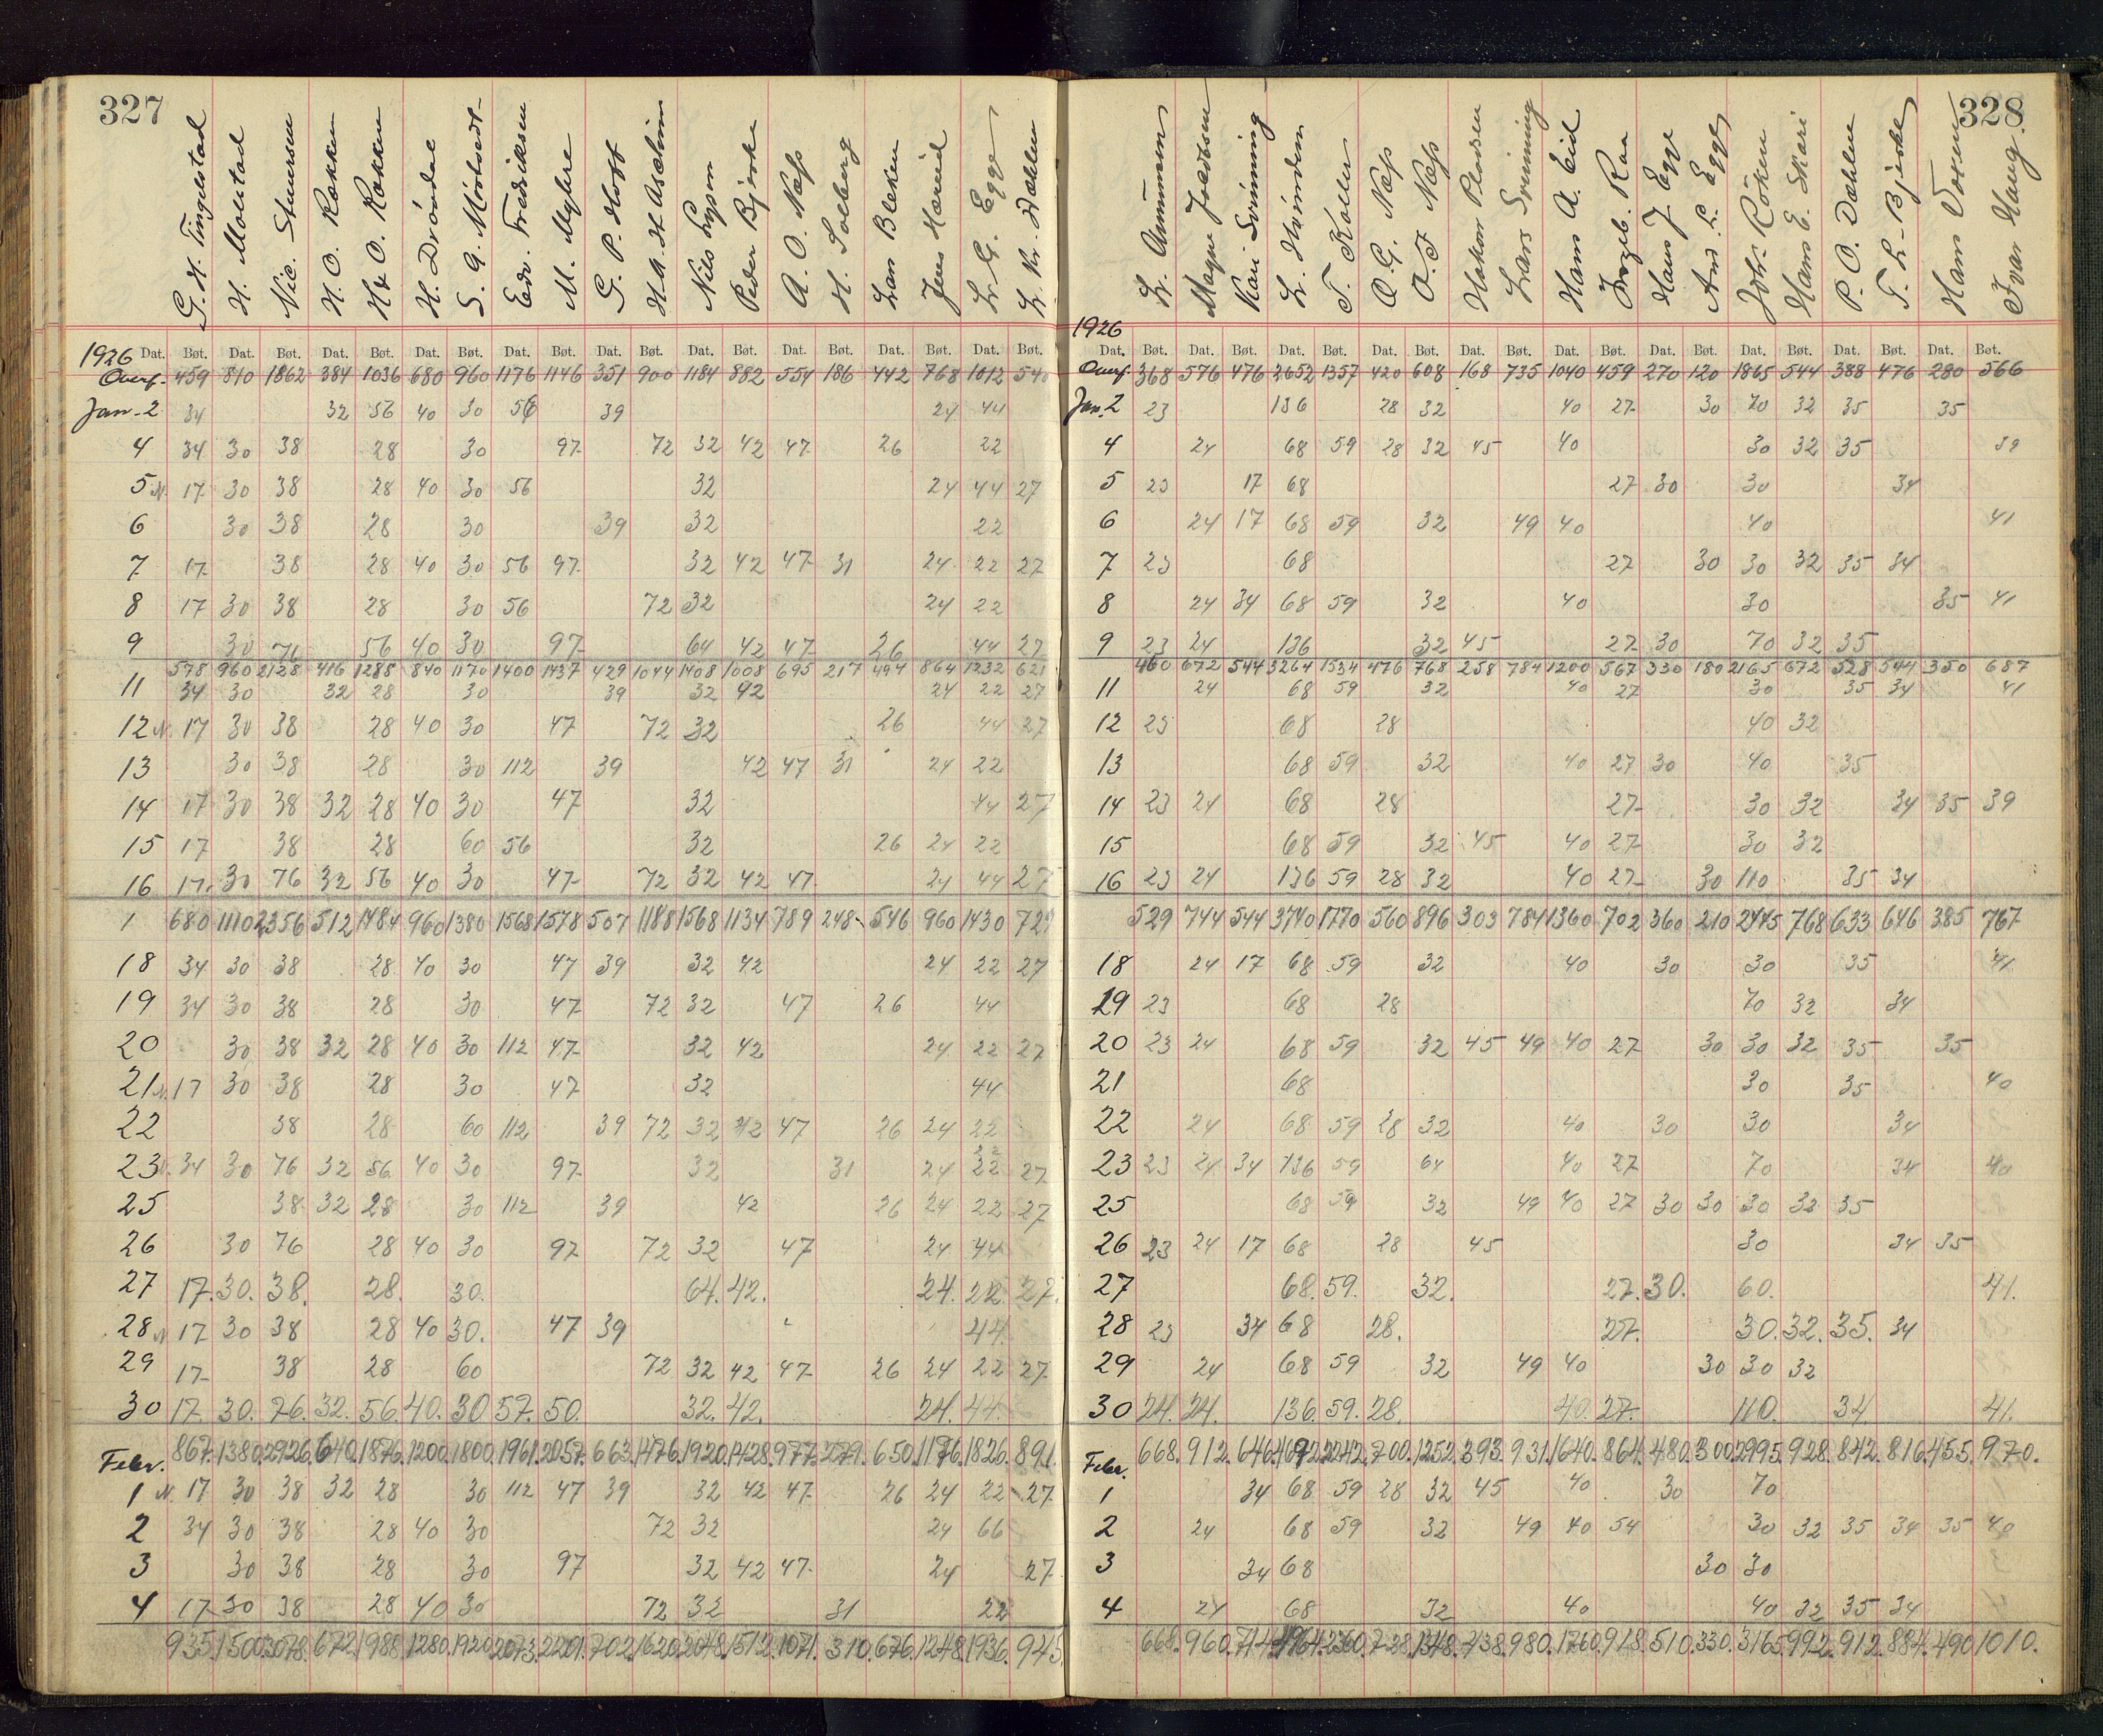 327
G. H. Tingelstad
H. Molstad
Nic. Stenersen
H. O. Rækken
H. O. Rækken
H. Drövdal
S. G. Mörstad
Edv. Fredriksen
M. Myhre
G. P. Hoff
H. A. H. Aschim
Nils Lysen
Peder Bjerke
A. O. Næss
H. Solberg
Lars Bleken
Jens Hæreid
L. G. Egge
L. Kr. Dæhlen
1926 Dat. Bøt. Dat. Bøt. Dat. Bøt. Dat. Bøt. Dat. Bøt. Dat. Bøt. Dat. Bøt. Dat. Bøt. Dat. Bøt. Dat. Bøt.
Overf. 459 810 1862 384 1036 680 960 1176 1146 351 900 1184 882 554 186 442 768 1012 540
Jan. 2 34 32 56 40 30 56 39 24 44
4 34 30 38 28 30 97 72 32 42 47 26 22
5 N. 17 30 38 28 40 30 56 32 24 44 27
6 30 38 28 30 39 32 22
7 17 38 28 40 30 56 97 32 42 47 31 24 22 27
8 17 30 38 28 30 56 72 32 24 22
9 30 76 56 40 30 97 64 42 47 26 44 27
578 960 2128 416 1288 840 1170 1400 1437 429 1044 1408 1008 695 217 494 864 1232 621
11 34 30 32 28 30 39 32 42 24 22 27
12 N. 17 30 38 28 40 30 47 72 32 26 44 27
13 30 38 28 30 112 39 42 47 31 24 22
14 17 30 38 32 28 40 30 47 32 44 27
15 17 38 28 60 56 32 26 24 22
16 17 30 76 32 56 40 30 47 72 32 42 47 24 44 27
1 680 1110 2356 512 1484 960 1380 1568 1578 507 1188 1568 1134 789 248 546 960 1430 729
18 34 30 38 28 40 30 47 39 32 42 24 22 27
19 34 30 38 28 30 47 72 32 47 26 44
20 30 38 32 28 40 30 112 47 32 42 24 22 27
21 N. 17 30 38 28 30 47 32 44
22 38 28 60 112 39 72 32 42 47 26 24 22
23 N. 34 30 76 32 56 40 30 97 32 31 24 22 22 27
25 38 32 28 30 112 39 42 26 24 22 27
26 30 76 28 40 30 97 72 32 47 24 44
27 17. 30. 38. 28. 30. 64. 42. 24. 22. 27.
28 N 17 30 38 28 40 30. 47 39 44
29 17 38 28 60 72 32 42 47 26 24 22 27
30 17. 30. 76. 32. 56. 40. 30 57. 50. 32. 42. 24. 44.
Febr. 867. 1380. 2926. 640. 1876. 1200. 1800. 1961. 2057. 663. 1476. 1920. 1428. 977. 279. 650. 1176. 1826. 891.
1 N. 17 30 38 32 28 30 112 47 39 32 42 47 26 24 22 27
2 34 30 38 28 40 30 72 32 24 66
3 30 38 28 30 97 32 42 47 24 27
4 17 30 38 28 40 30 72 32 31 22
935. 1500. 3078. 672. 1988. 1280. 1920. 2073. 2201. 702. 1620. 2048. 1512. 1071. 310. 676. 1248. 1936. 945.
328
L. Amundsen
Magne Jacobsen
Kari Svinning
L. Horndem
T. Koller
O. G. Næss
O. T. Næss
Hakon Paulsen
Lars Svinning
Hans A. Eid
Ingeb. Raa
Hans J. Egge
And. L. Egge
Joh. Röken
Hans E. Skari
P. O. Dæhlen
T. L. Bjerke
Hans Voxen
Ivar Haug.
1926
Dat. Bøt. Dat. Bøt. Dat. Bøt. Dat. Bøt. Dat. Bøt. Dat. Bøt. Dat. Bøt. Dat. Bøt. Dat. Bøt. Dat. Bøt.
Overf. 368 576 476 2652 1357 420 608 168 735 1040 459 270 120 1865 544 388 476 280 566
Jan. 2 23 136 28 32 40 27 30 70 32 35 35
4 24 68 59 28 32 45 40 30 32 35 39
5 23 17 68 27 30 30 34
6 24 17 68 59 32 49 40 40 41
7 23 68 27 30 30 32 35 34
8 24 34 68 59 32 40 30 35 41
9 23 24 136 32 45 27 30 70 32 35
460 672 544 3264 1534 476 768 258 784 1200 567 330 180 2165 672 528 544 350 687
11 24 68 59 32 40 27 30 35 34 41
12 23 68 28 40 32
13 68 59 32 40 27 30 40 35
14 23 24 68 28 27 30 32 34 35 39
15 68 59 32 45 40 27 30 32
16 23 24 136 59 28 32 40 27 30 110 35 34
529 744 544 3740 1770 560 896 303 784 1360 702 360 210 2445 768 633 646 385 767
18 24 17 68 59 32 40 30 30 35 41
19 23 68 28 70 32 34
20 23 24 68 59 32 45 49 40 27 30 30 32 35 35
21 68 30 35 40
22 24 68 59 28 32 40 30 30 34
23 23 24 34 136 59 64 40 27 70 34 40
25 68 59 32 49 40 27 30 30 30 32 35
26 23 24 17 68 28 45 30 34 35
27 68. 59. 32. 27. 30. 60. 41.
28 23 34 68 28. 27. 30. 32. 35. 34
29 24 68 59 32 49 40 30 30 32
30 24. 24. 136. 59. 28. 40. 27. 110. 34. 41.
Febr. 668. 912. 646. 4692. 2242. 700. 1252. 393. 931. 1640. 864. 480. 300. 2995. 928. 842. 816. 455. 970.
1 34 68 59 28 32 45 40 30 70
2 24 68 59 32 49 40 54 30 32 35 34 35 40
3 34 68 30 30
4 24 68 32 40 40 32 35 34
668. 960. 714. 4964. 2360. 728. 1348. 438. 980. 1760. 918. 510. 330. 3165. 992. 912. 884. 490. 1010.